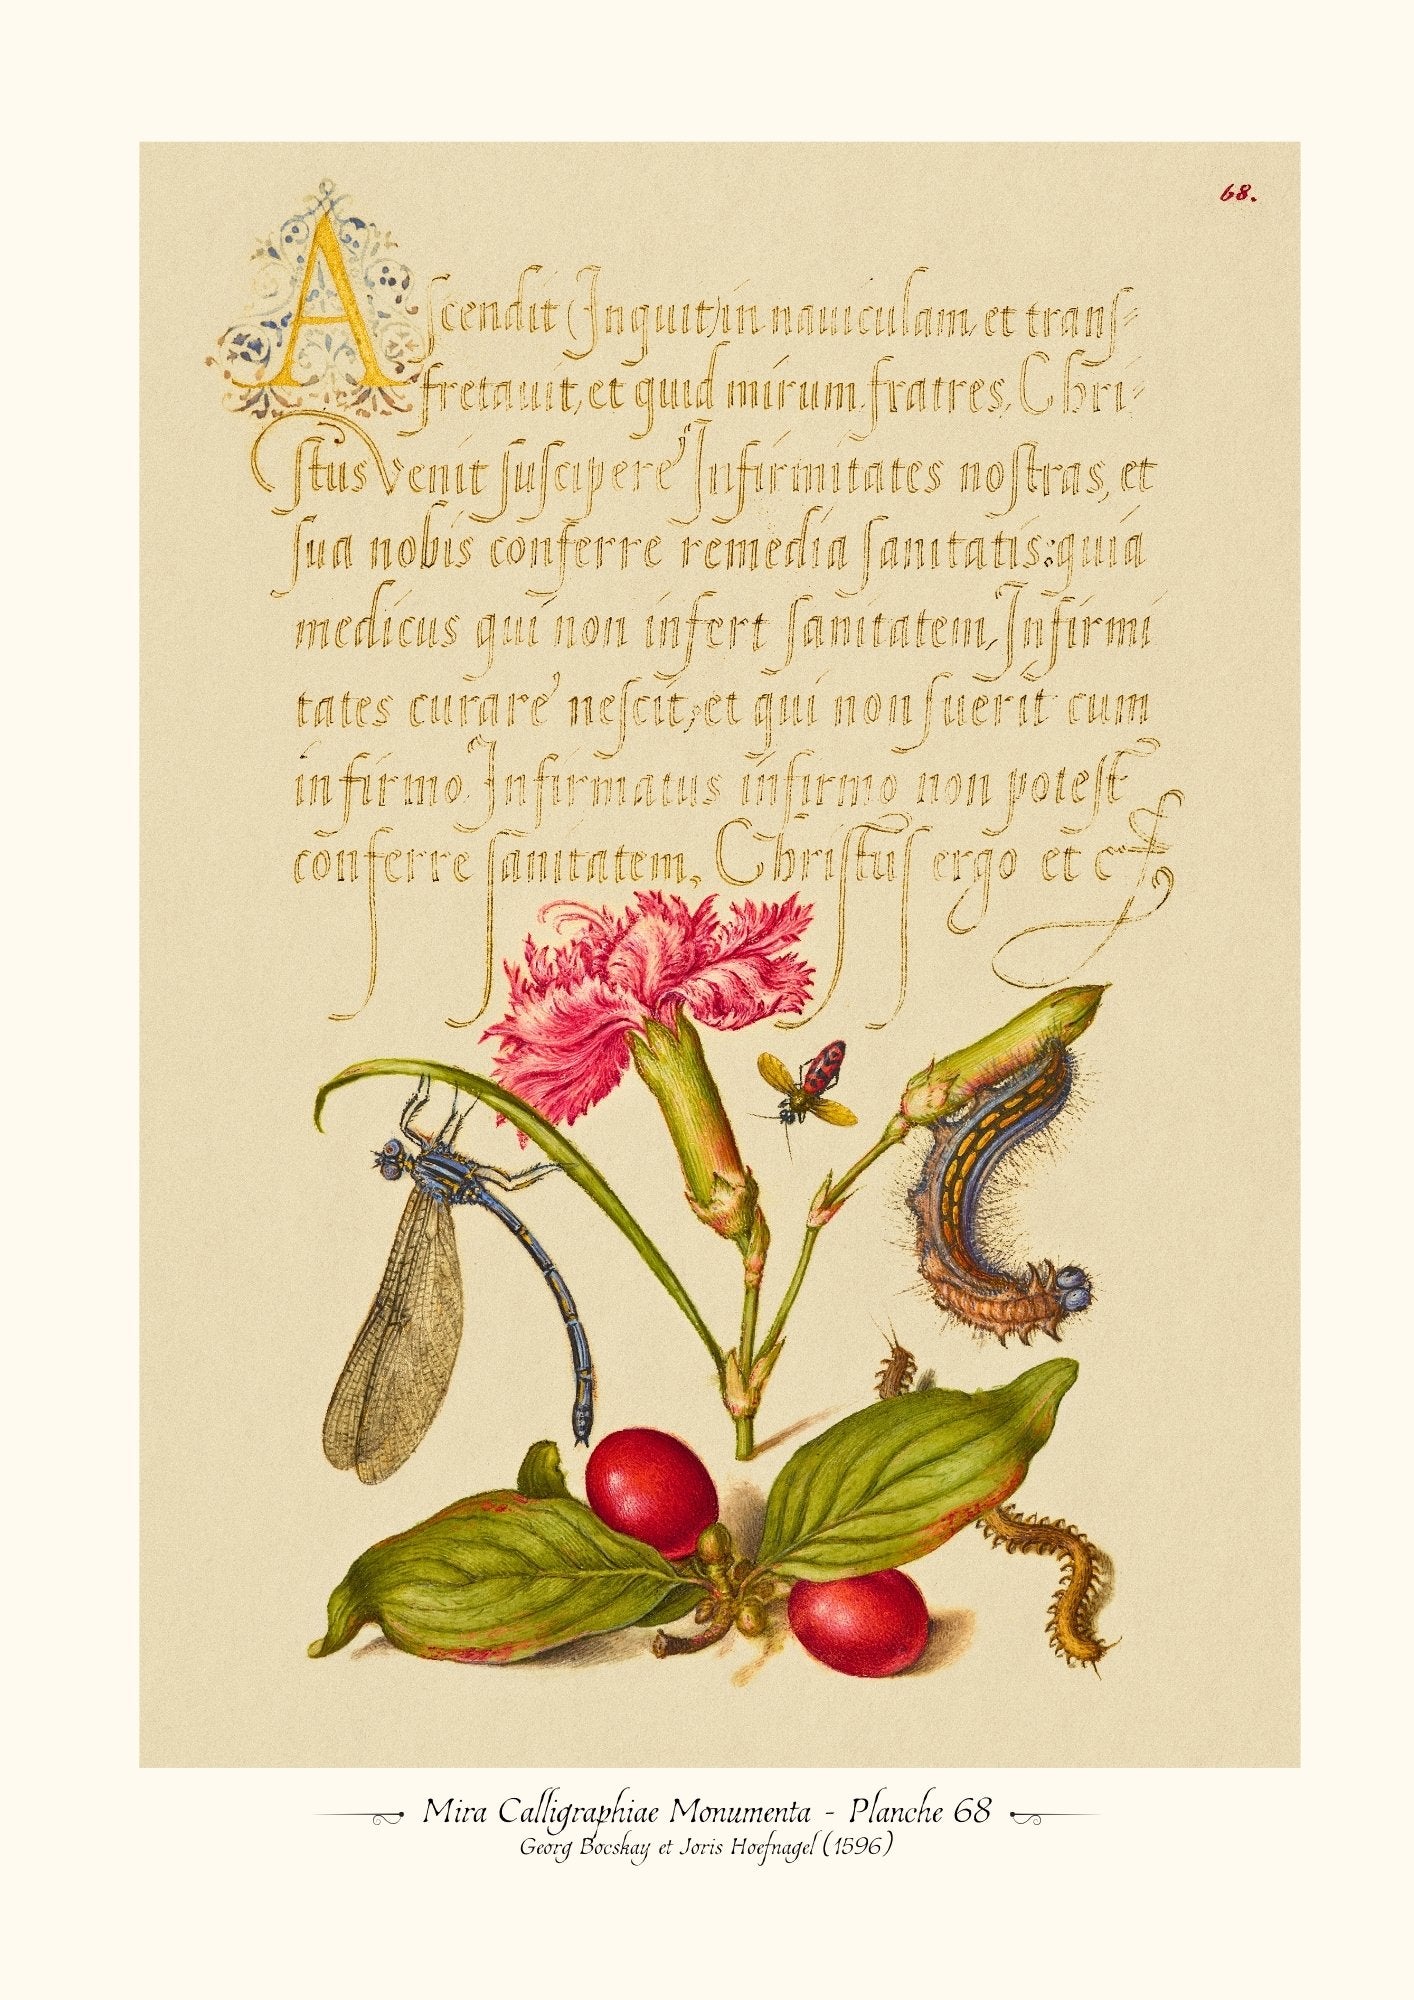 68.
Ascendit (Inquit) in nauiculam, et trans⸗
fretauit, et quid mirum fratres, Chri⸗
ſtus venit ſuſcipere Infirmitates noſtras, et
ſua nobis conferre remedia ſanitatis: quia
medicus qui non infert ſanitatem, Infirmi
tates curare neſcit, et qui non fuerit cum
infirmo Infirmatus infirmo non poteſt
conferre ſanitatem, Chriſtuſ ergo et c
Mira Calligraphiae Monumenta - Planche 68
Georg Bocskay et Joris Hoefnagel (1596)